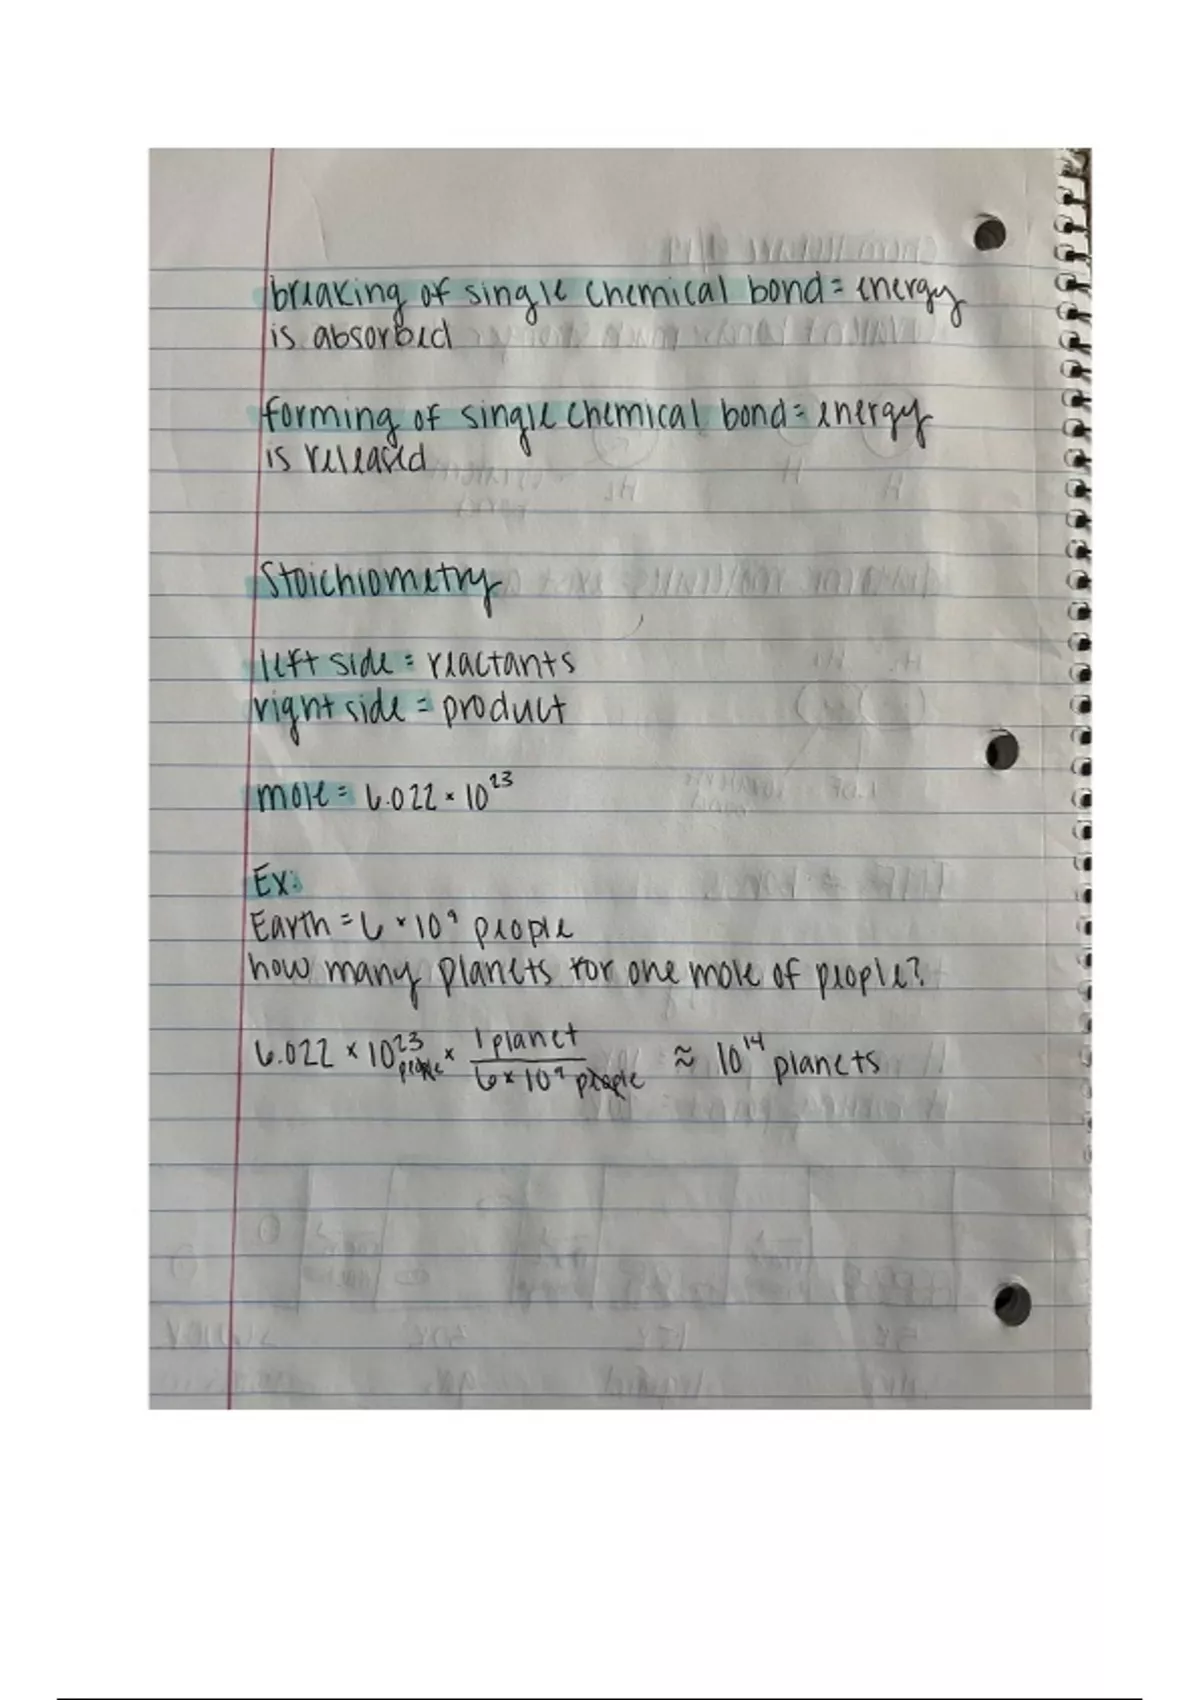 breaking of single chemical bond = energy
is absorbed
forming of single chemical bond = energy
is released
Stoichiometry
left side = reactants
right side = product
mole = 6.022 × 10²³
Ex:
Earth = 6 × 10⁹ people
how many planets for one mole of people?
6.022 × 10²³ people × 1 planet / 6 × 10⁹ people ≈ 10¹⁴ planets